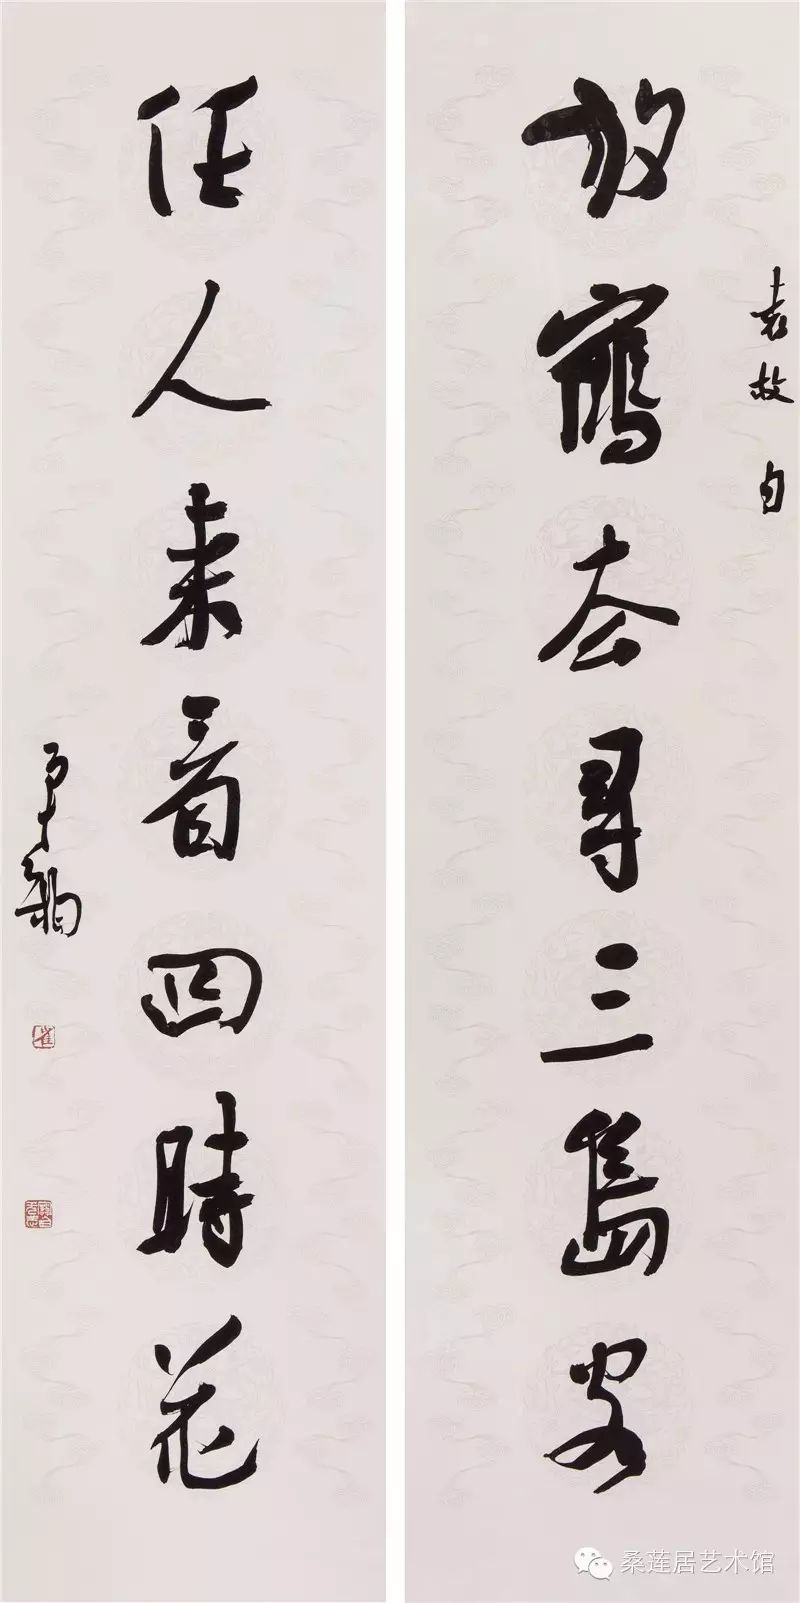 放鶴去尋三島客
袁枚句
任人來看四時花
崔
桑莲居艺术馆